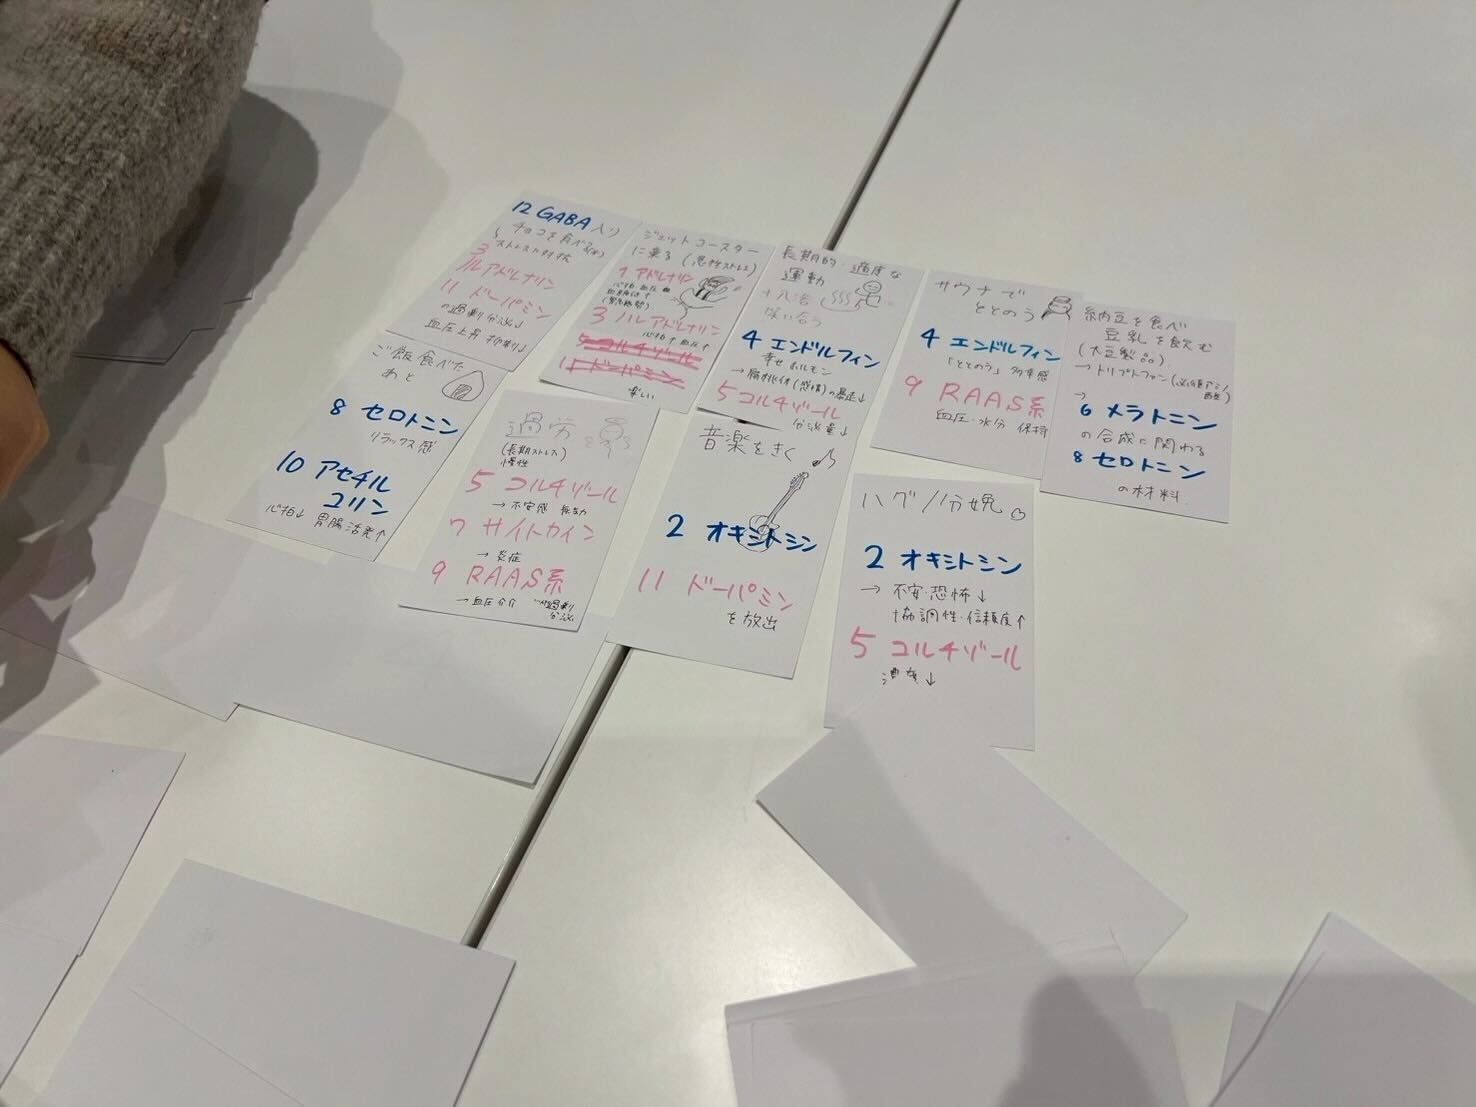 12 GABA 入り
チョコを食べる(w)
ストレスに対抗
3
ノルアドレナリン
11 ドーパミン
の過剰分泌↓
血圧上昇抑制↓
ジェットコースター
に乗る(急性ストレス)
1 アドレナリン
心拍 血圧
(緊急態勢)
3 ノルアドレナリン
心拍↑血圧↑
5 コルチゾール
11 ドーパミン
楽しい
長期的・適度な
運動
+入浴
笑い合う
4 エンドルフィン
幸せホルモン
→扁桃体(感情)の暴走↓
5 コルチゾール
分泌量↓
サウナで
ととのう
4 エンドルフィン
「ととのう」多幸感
9 RAAS系
血圧・水分 保持
納豆を食べ
豆乳を飲む
(大豆製品)
→トリプトファン(必須アミノ
酸)
→
6 メラトニン
の合成に関わる
8 セロトニン
の材料
ご飯食べた
あと
8 セロトニン
リラックス感
10 アセチル
コリン
心拍↓ 胃腸活発↑
過労
(長期ストレス)
慢性
5 コルチゾール
→不安感 無気力
7 サイトカイン
→炎症
9 RAAS系
→血圧 過剰
分泌
音楽をきく
2 オキシトシン
11 ドーパミン
を放出
ハグ/分娩
2 オキシトシン
→ 不安・恐怖↓
協調性・信頼度↑
5 コルチゾール
濃度↓